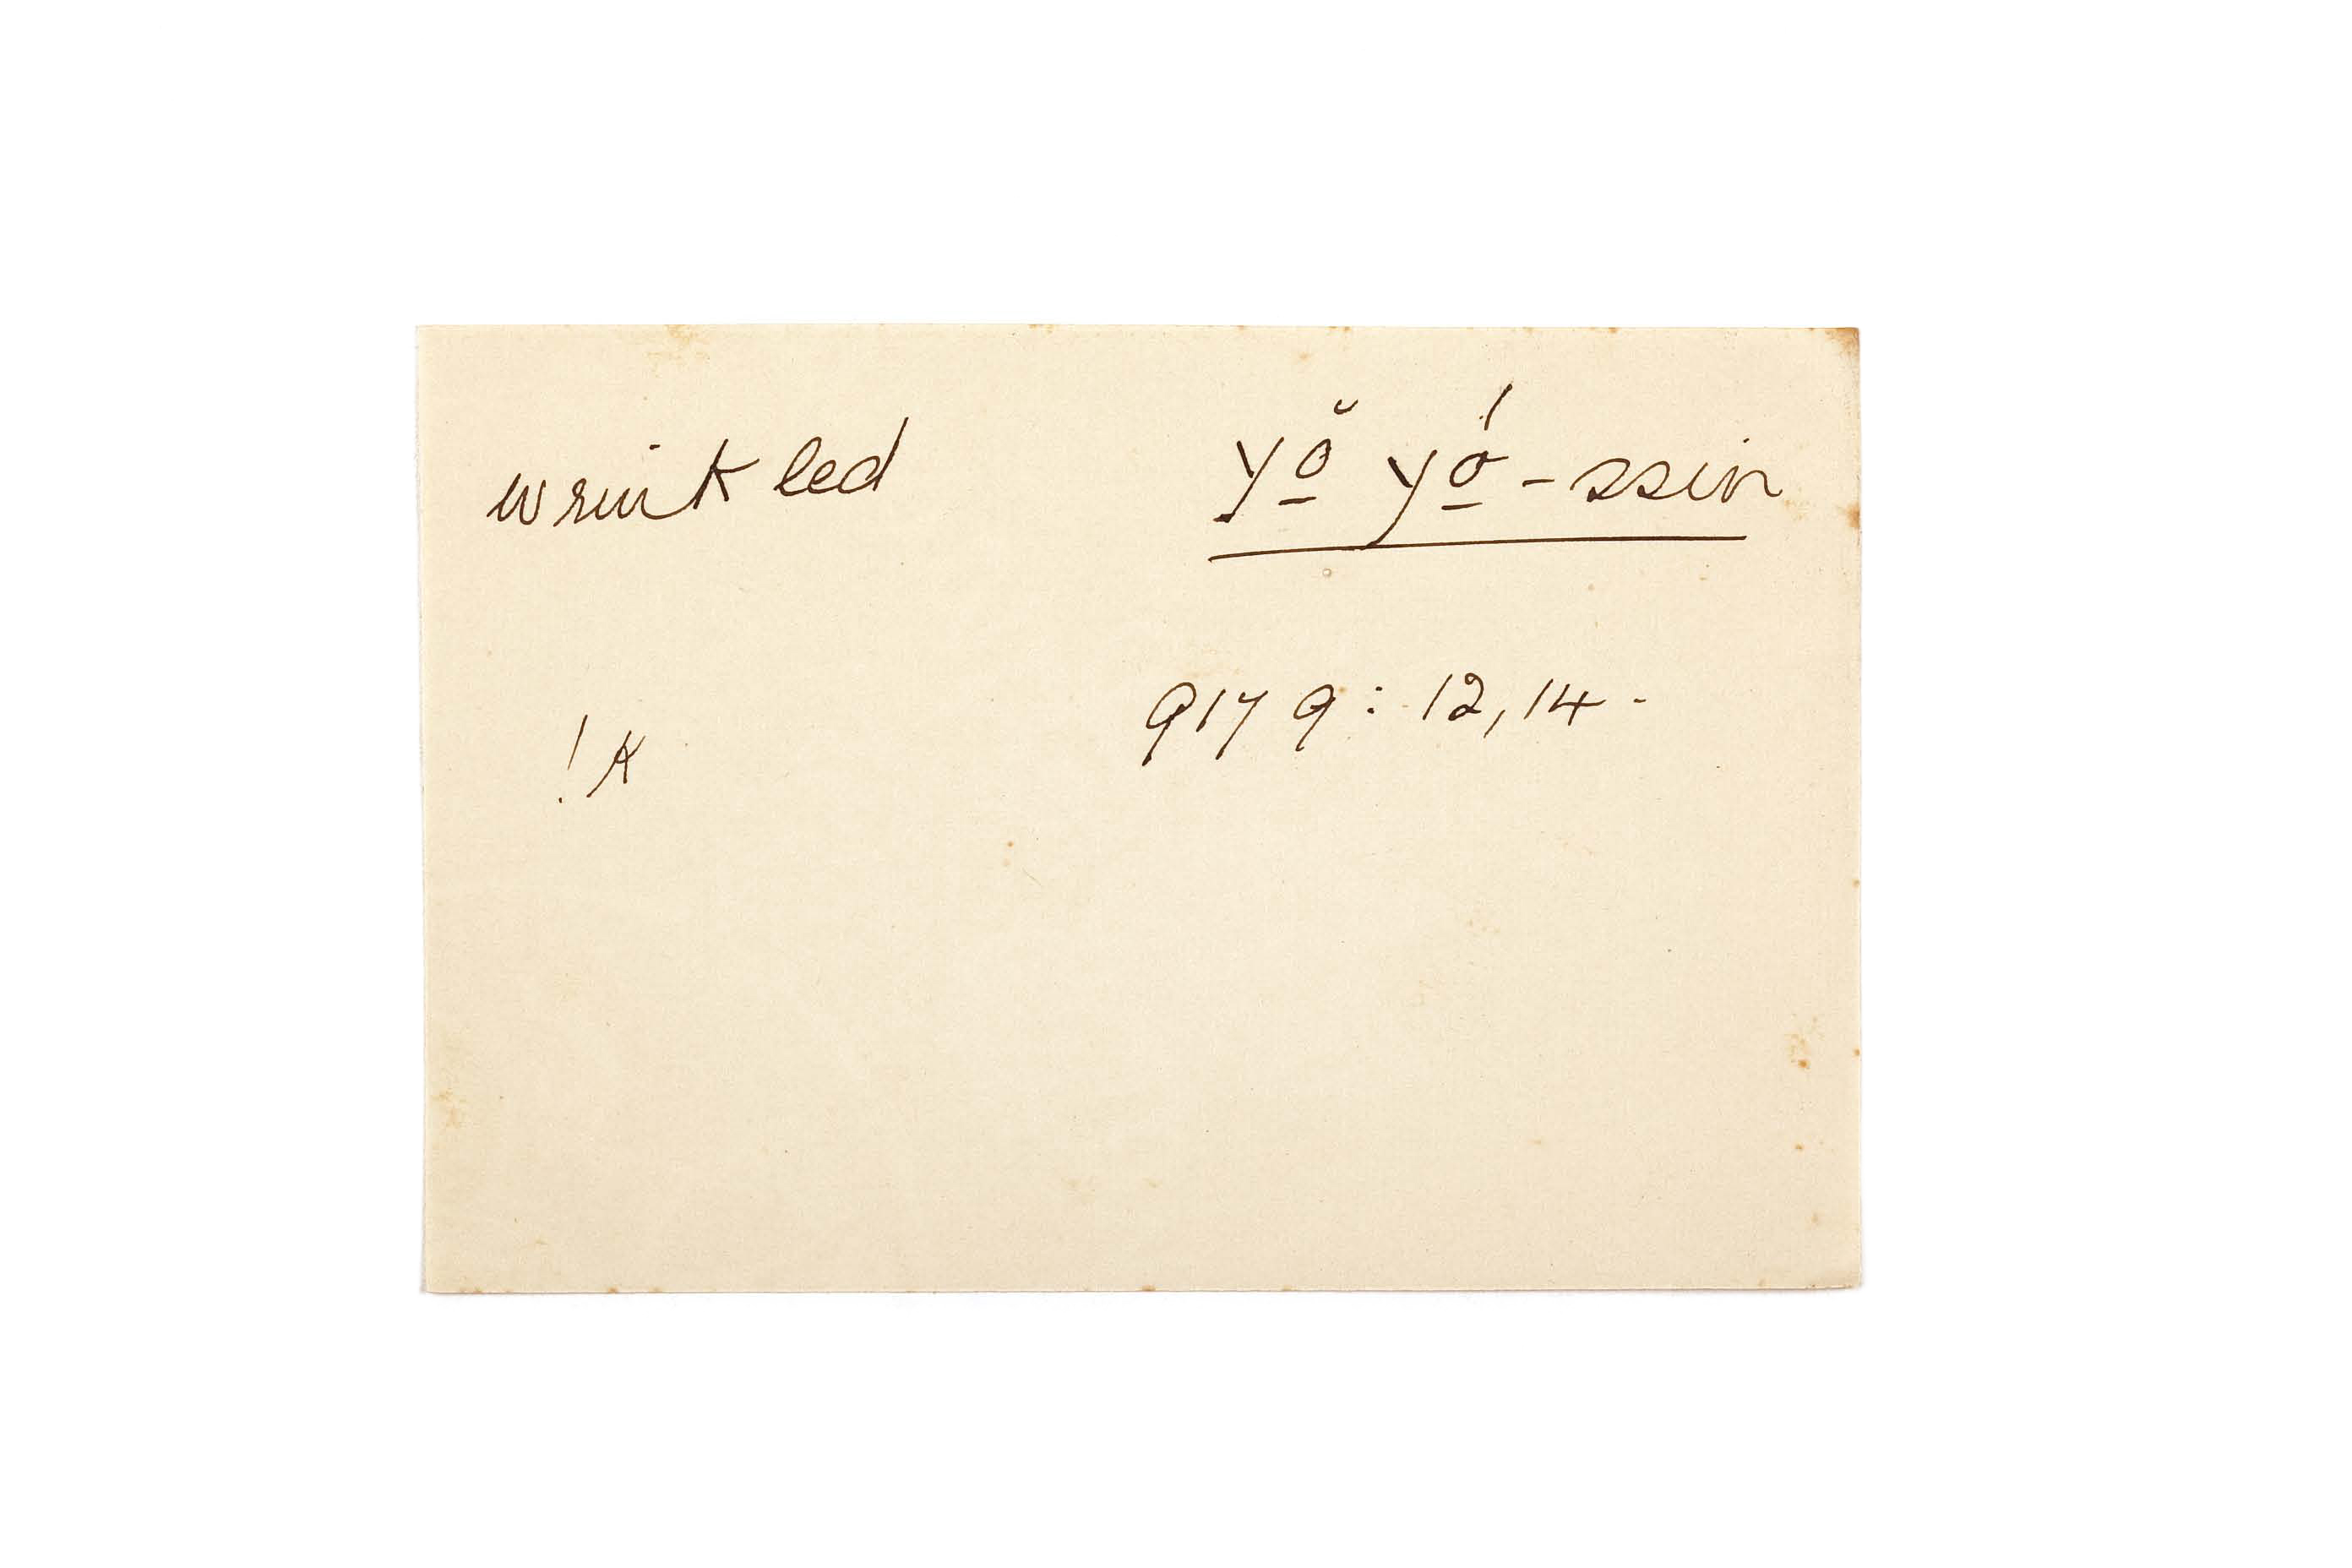 wrinkled yŏ̱ yó̱-ssin
!k 9179: 12, 14-